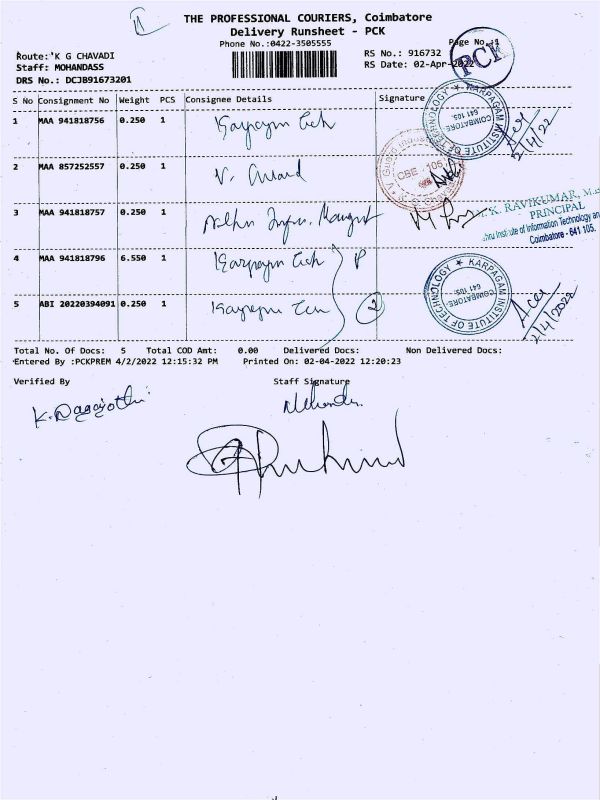 THE PROFESSIONAL COURIERS, Coimbatore
Delivery Runsheet - PCK
Phone No.:0422-3505555
Page No.:1
PCK
Route: K G CHAVADI
Staff: MOHANDASS
DRS No.: DCJB91673201
RS No.: 916732
RS Date: 02-Apr-2022
S No Consignment No Weight PCS Consignee Details Signature
1 MAA 941818756 0.250 1
KARPAGAM INSTITUTE OF TECHNOLOGY
COIMBATORE-
641 105.
2/4/22
2 MAA 857252557 0.250 1 V. Anand
3 MAA 941818757 0.250 1
K. RAVIKUMAR,
PRINCIPAL
Institute of Information Technology and
Coimbatore - 641 105.
4 MAA 941818796 6.550 1
KARPAGAM INSTITUTE OF TECHNOLOGY
COIMBATORE-
641 105.
5 ABI 20220394091 0.250 1 2
2/4/2022
Total No. Of Docs: 5 Total COD Amt: 0.00 Delivered Docs: Non Delivered Docs:
Entered By :PCKPREM 4/2/2022 12:15:32 PM Printed On: 02-04-2022 12:20:23
Verified By Staff Signature